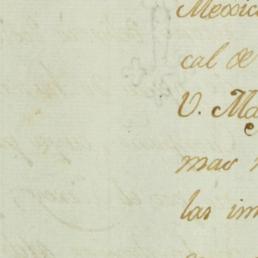 Mexic
cal de
V. Ma
mas
las im